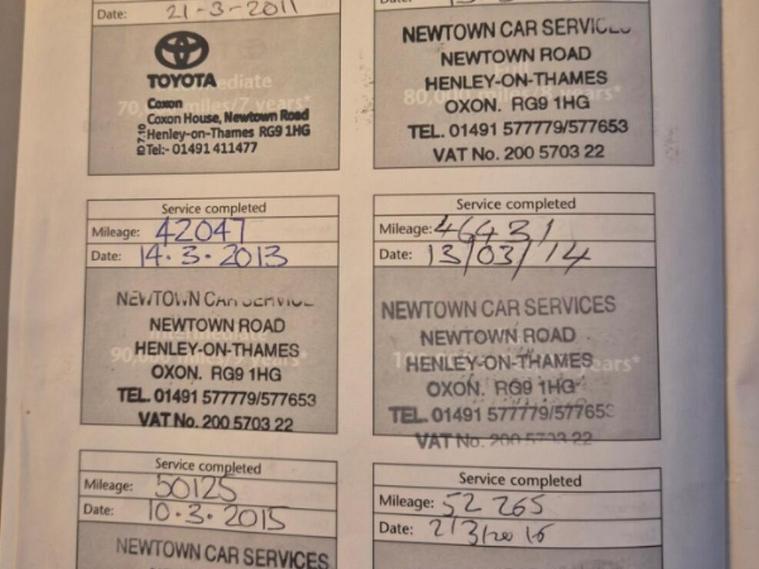 Date: 21-3-2011
TOYOTA
Intermediate
70,000 miles/7 years*
Coxon
Coxon House, Newtown Road
Henley-on-Thames RG9 1HG
Tel:- 01491 411477
ID 7.10
Date:
NEWTOWN CAR SERVICES
NEWTOWN ROAD
Full
HENLEY-ON-THAMES
80,000 miles/8 years*
OXON. RG9 1HG
TEL. 01491 577779/577653
VAT No. 200 5703 22
Service completed
Mileage: 42047
Date: 14.3.2013
NEWTOWN CAR SERVICE
NEWTOWN ROAD
Intermediate
HENLEY-ON-THAMES
90,000 miles/9 years*
OXON. RG9 1HG
TEL. 01491 577779/577653
VAT No. 200 5703 22
Service completed
Mileage: 46431
Date: 13/03/14
NEWTOWN CAR SERVICES
NEWTOWN ROAD
HENLEY-ON-THAMES
years*
OXON. RG9 1HG
TEL. 01491 577779/577653
VAT No. 200 5703 22
Service completed
Mileage: 50125
Date: 10.3.2015
NEWTOWN CAR SERVICES
Service completed
Mileage: 52 265
Date: 2/3/2016